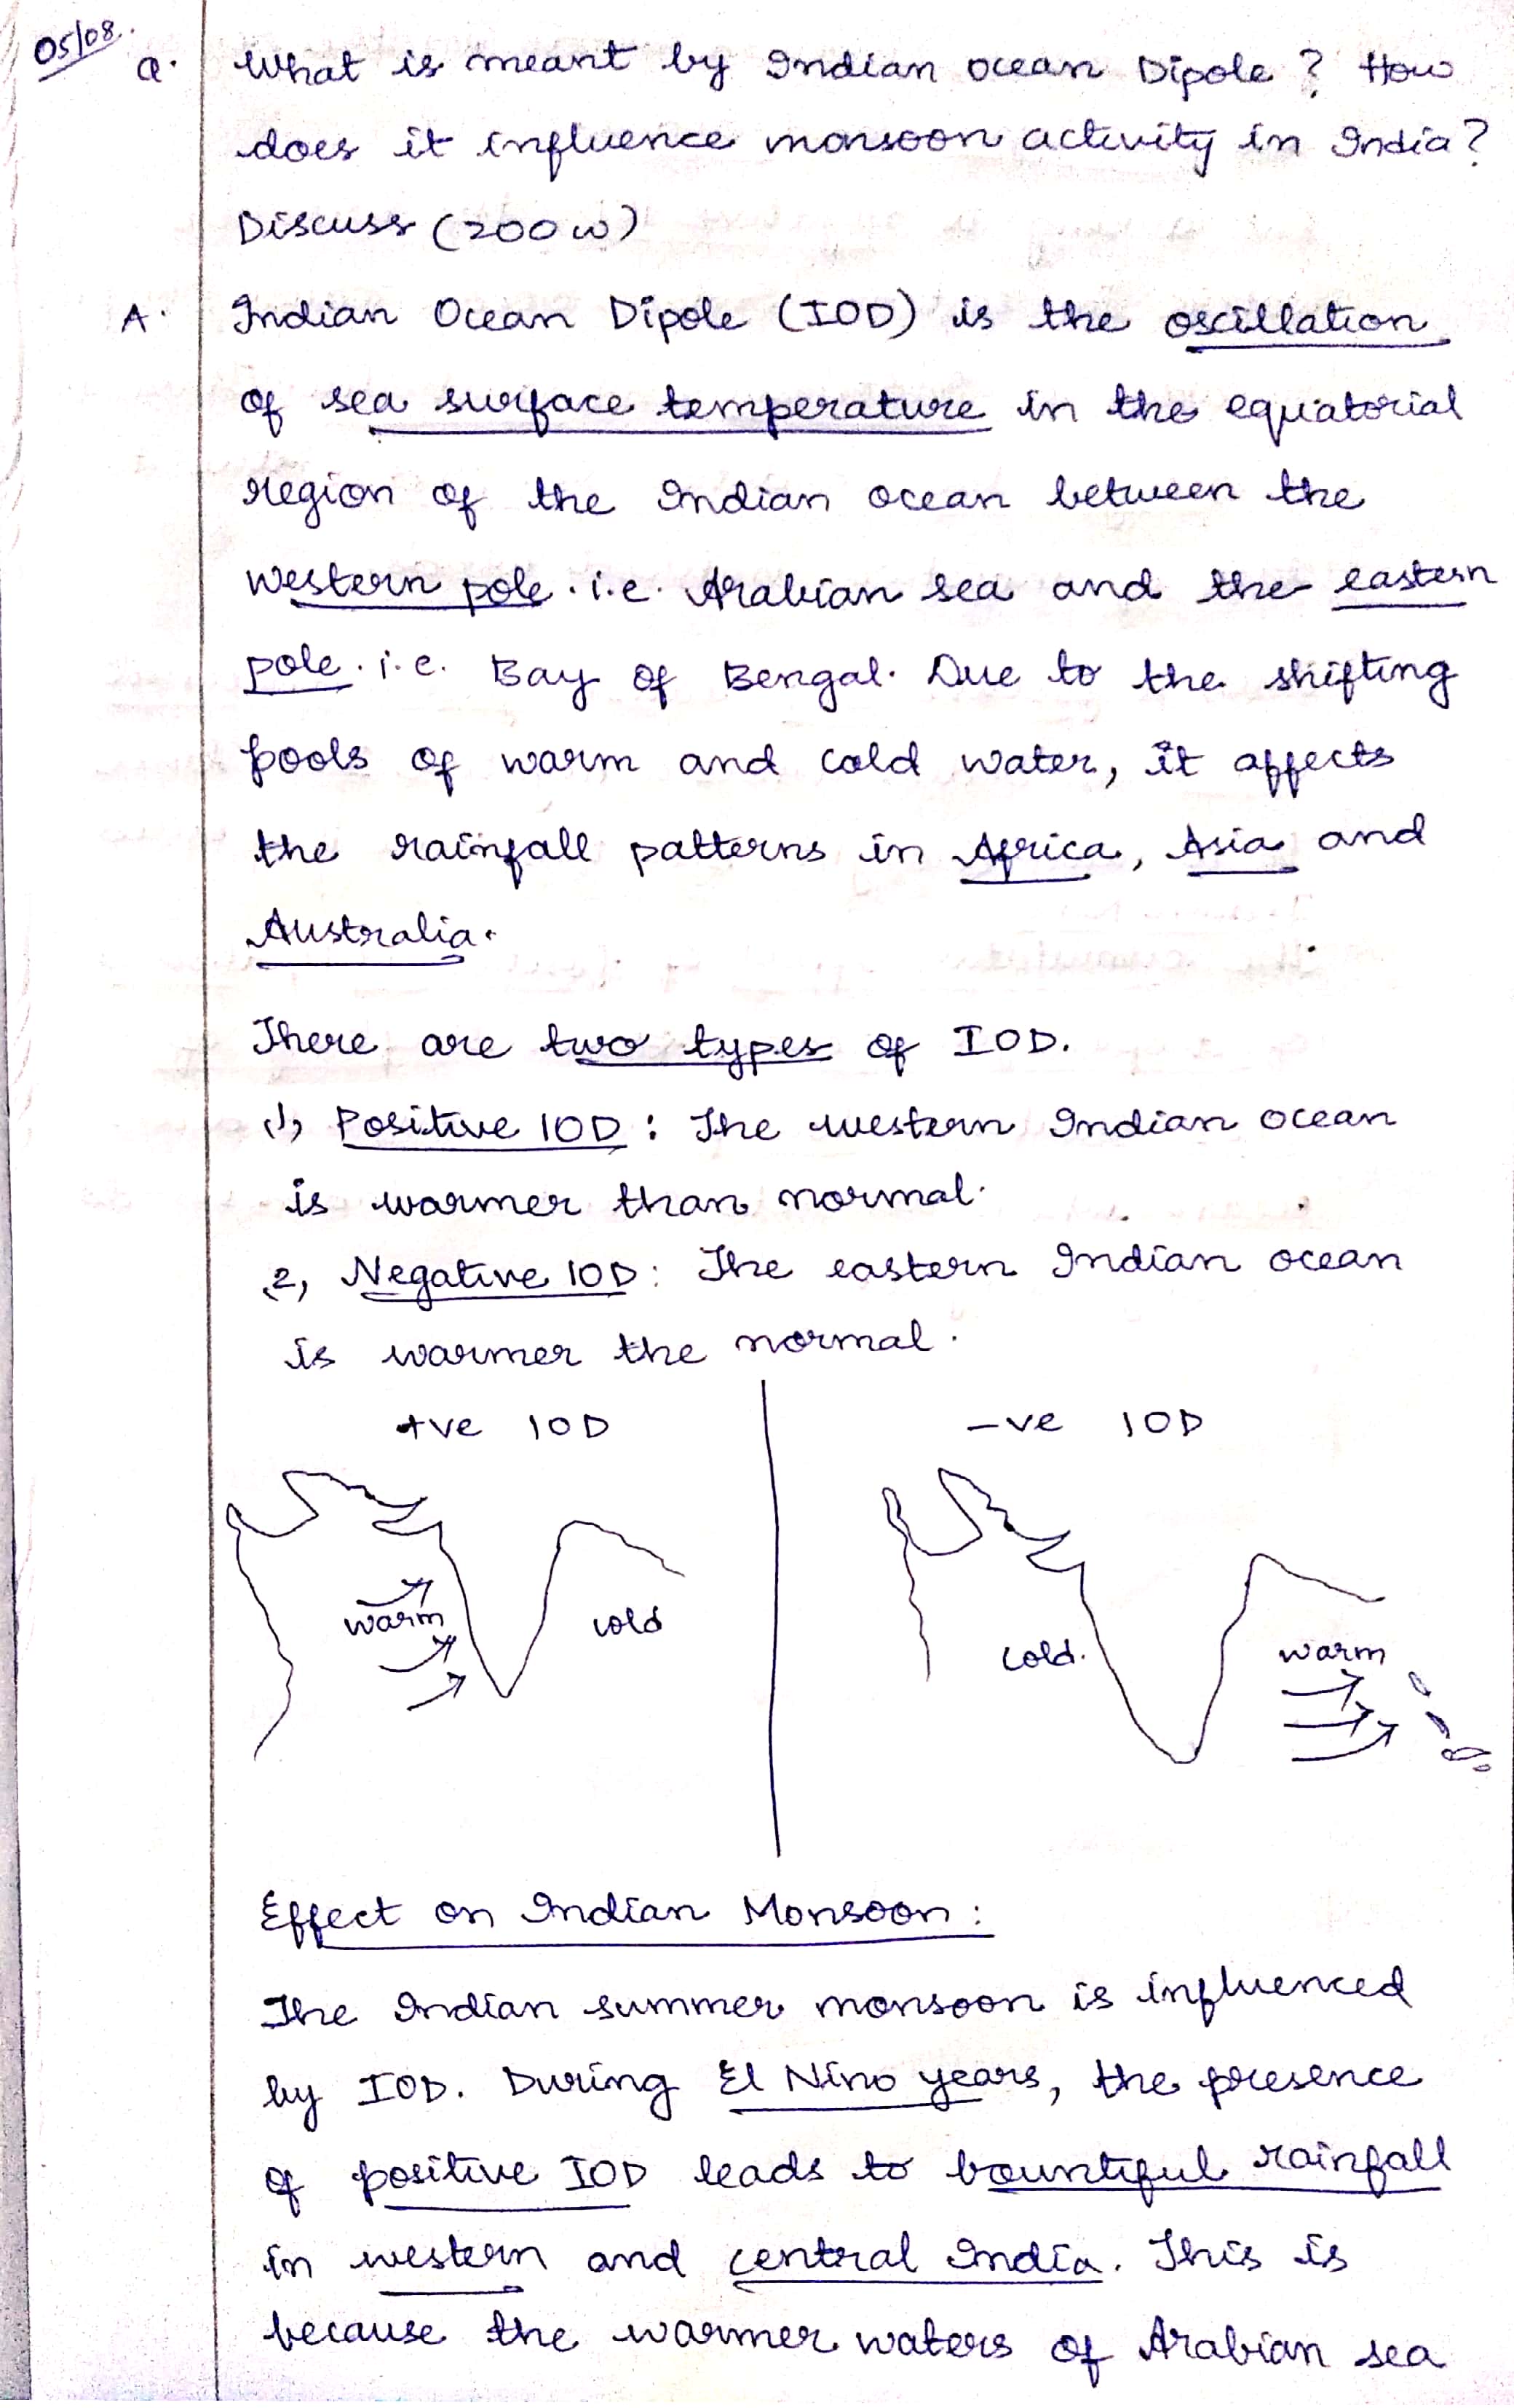 05/08.
Q. What is meant by Indian ocean Dipole? How
does it influence monsoon activity in India?
Discuss (200 w)
A. Indian Ocean Dipole (IOD) is the oscillation
of sea surface temperature in the equatorial
region of the Indian ocean between the
western pole. i.e. Arabian sea and the eastern
pole. i.e. Bay of Bengal. Due to the shifting
pools of warm and cold water, it affects
the rainfall patterns in Africa, Asia and
Australia.
There are two types of IOD.
(1) Positive IOD: The western Indian ocean
is warmer than normal.
(2) Negative IOD: The eastern Indian ocean
is warmer the normal.
+ve IOD
-ve IOD
warm
cold
cold.
warm
Effect on Indian Monsoon:
The Indian summer monsoon is influenced
by IOD. During El Nino years, the presence
of positive IOD leads to bountiful rainfall
in western and central India. This is
because the warmer waters of Arabian sea